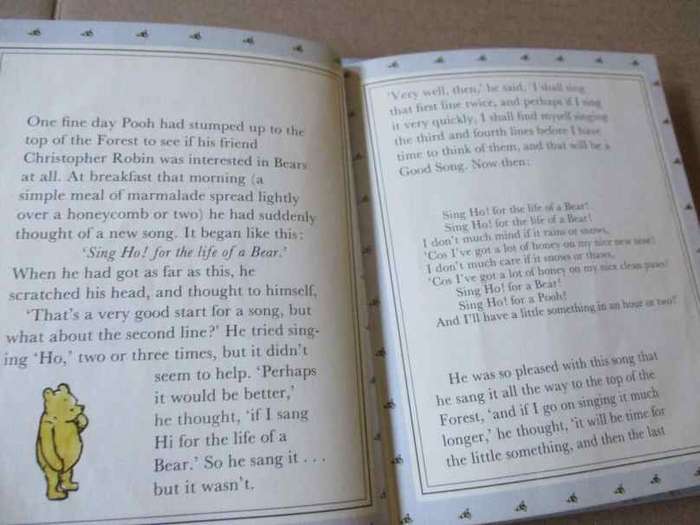 One fine day Pooh had stumped up to the
top of the Forest to see if his friend
Christopher Robin was interested in Bears
at all. At breakfast that morning (a
simple meal of marmalade spread lightly
over a honeycomb or two) he had suddenly
thought of a new song. It began like this:
‘Sing Ho! for the life of a Bear.’
When he had got as far as this, he
scratched his head, and thought to himself,
‘That's a very good start for a song, but
what about the second line?’ He tried sing-
ing ‘Ho,’ two or three times, but it didn't
seem to help. ‘Perhaps
it would be better,’
he thought, ‘if I sang
Hi for the life of a
Bear.’ So he sang it . . .
but it wasn't.
‘Very well, then,’ he said, ‘I shall sing
that first line twice, and perhaps if I sing
it very quickly, I shall find myself singing
the third and fourth lines before I have
time to think of them, and that will be a
Good Song. Now then:
Sing Ho! for the life of a Bear!
Sing Ho! for the life of a Bear!
I don't much mind if it rains or snows,
‘Cos I've got a lot of honey on my nice new nose!
I don't much care if it snows or thaws,
‘Cos I've got a lot of honey on my nice clean paws!
Sing Ho! for a Bear!
Sing Ho! for a Pooh!
And I'll have a little something in an hour or two!’
He was so pleased with this song that
he sang it all the way to the top of the
Forest, ‘and if I go on singing it much
longer,’ he thought, ‘it will be time for
the little something, and then the last